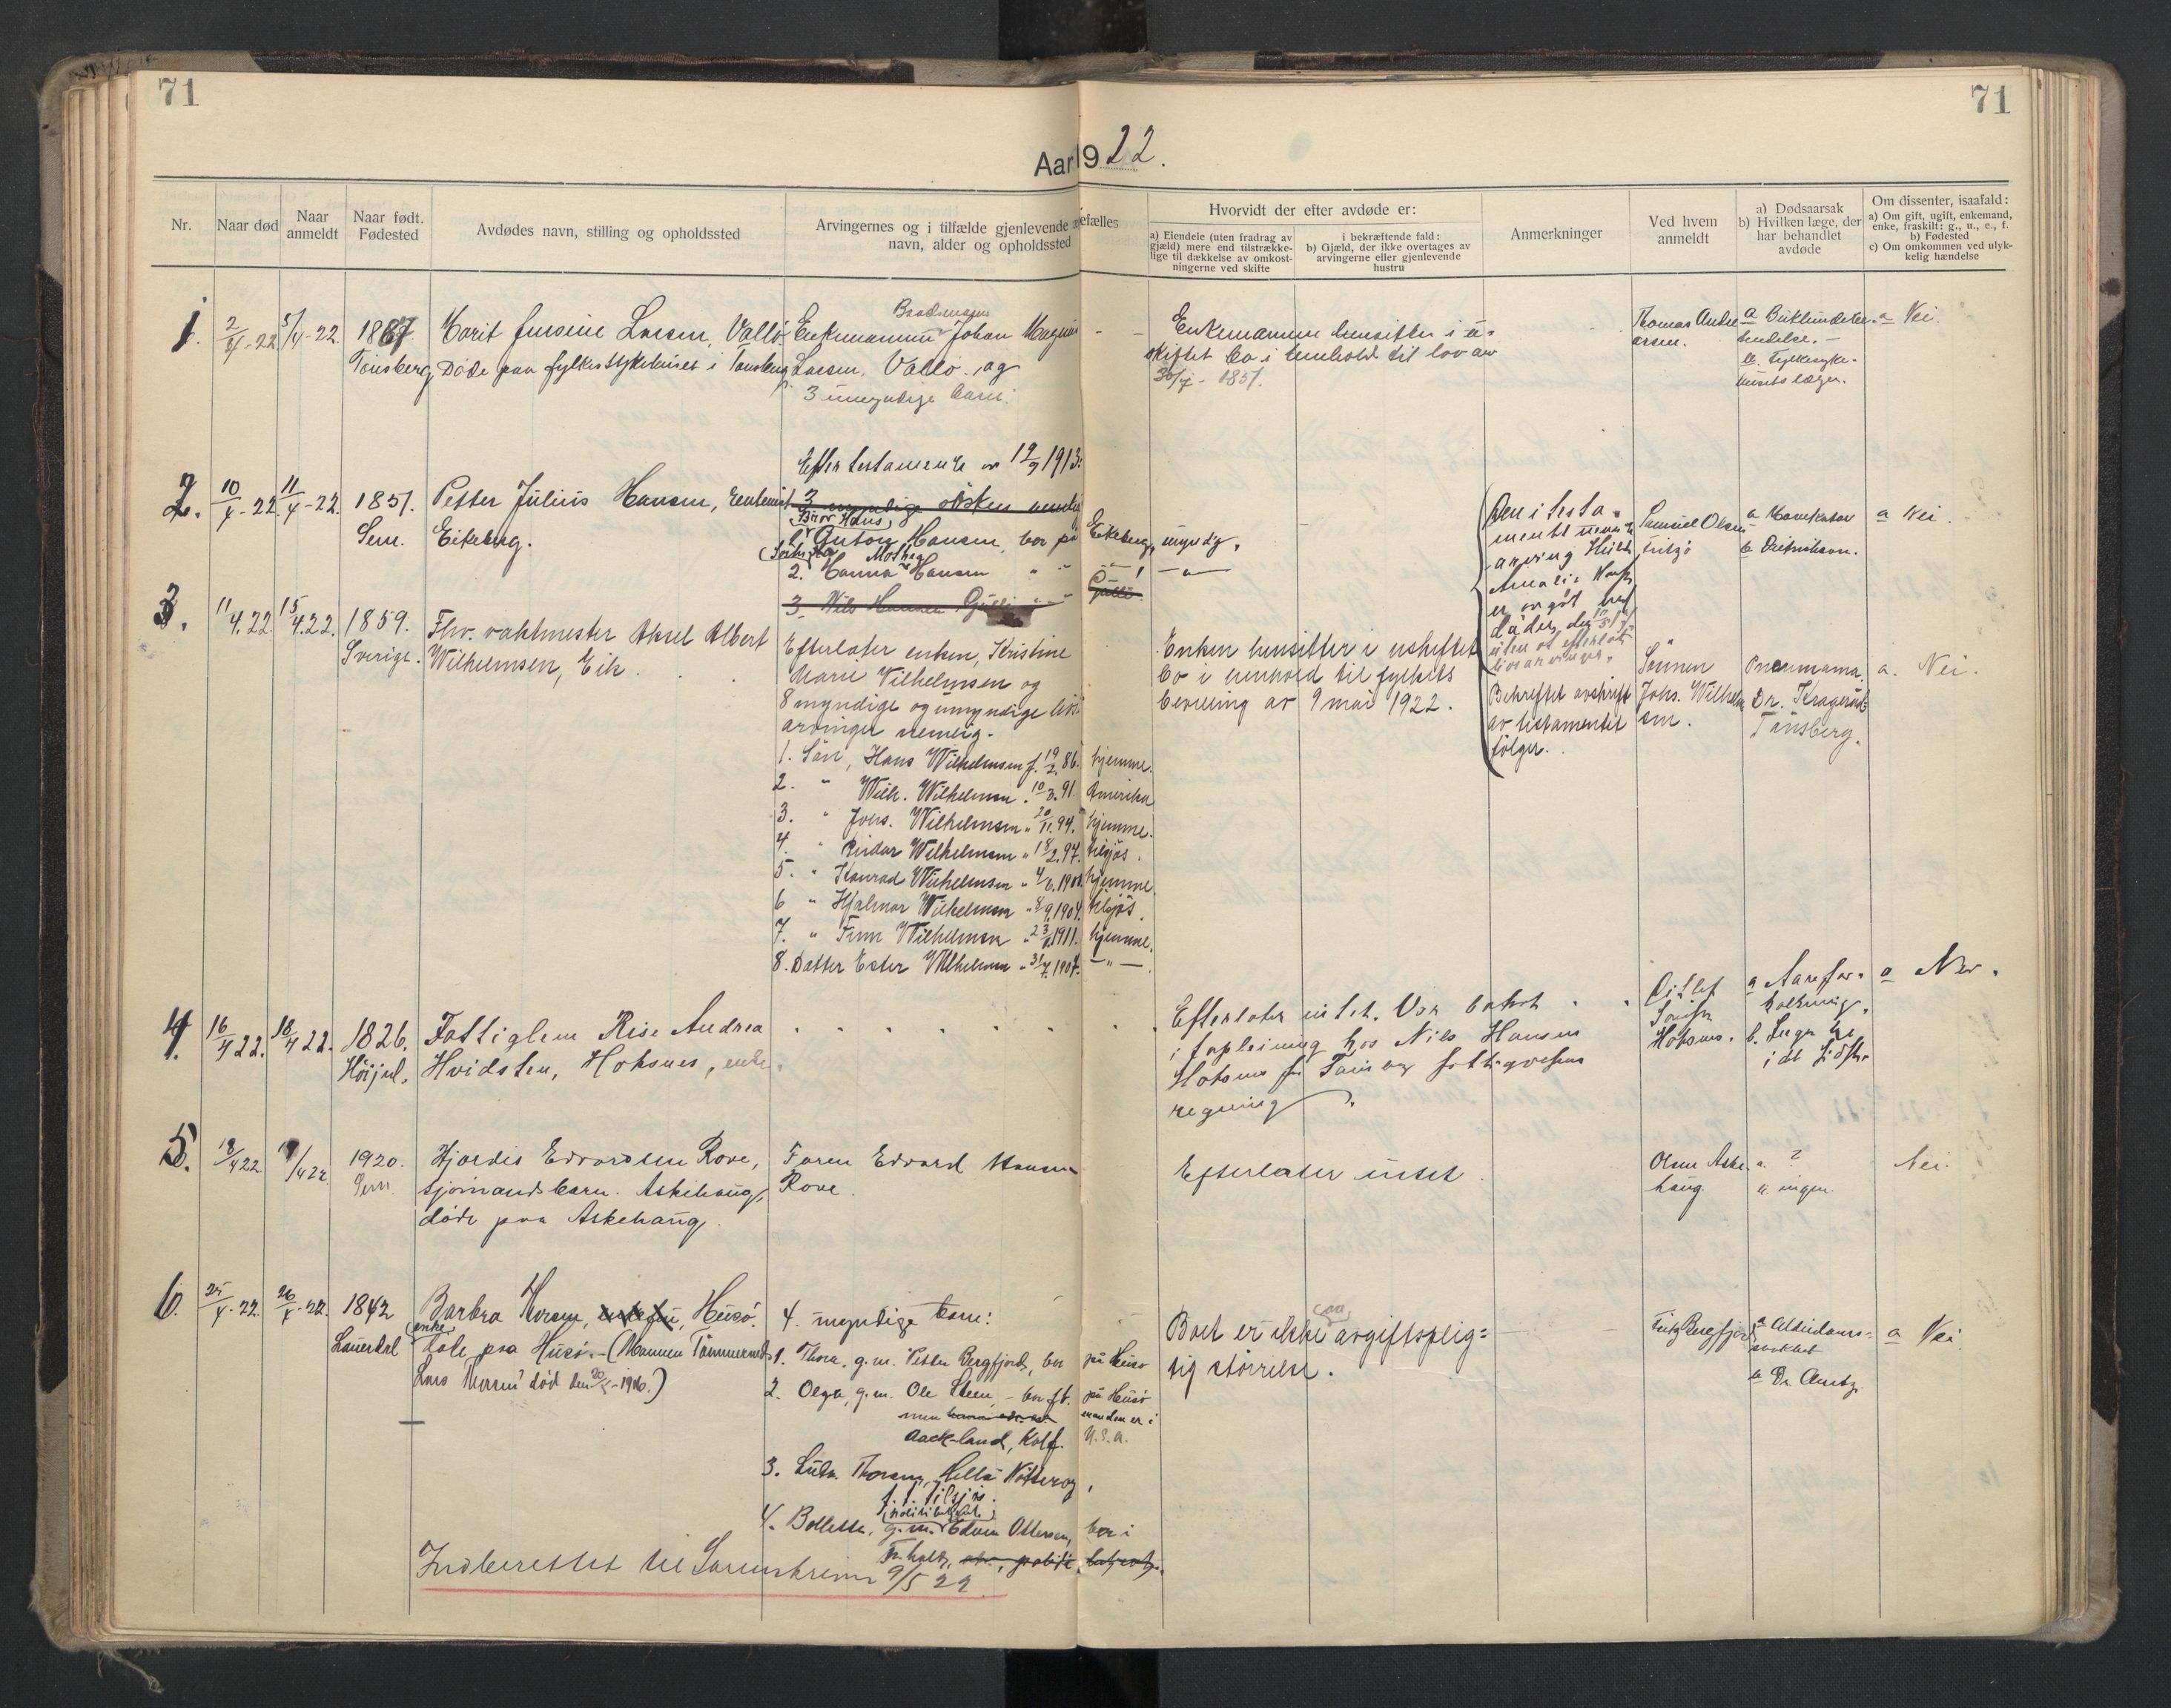 71
71
Aar 1922.
Nr.
Naar død
Naar anmeldt
Naar født. Fødested
Avdødes navn, stilling og opholdssted
Arvingernes og i tilfælde gjenlevende ægtefælles
navn, alder og opholdssted
Hvorvidt der efter avdøde er:
a) Eiendele (uten fradrag av
gjæld) mere end tilstrække-
lige til dækkelse av omkost-
ningerne ved skifte
i bekræftende fald:
b) Gjæld, der ikke overtages av
arvingerne eller gjenlevende
hustru
Anmerkninger
Ved hvem
anmeldt
a) Dødsaarsak
b) Hvilken læge, der
har behandlet
avdøde
Om dissenter, isaafald:
a) Om gift, ugift, enkemand,
enke, fraskilt: g., u., e., f.
b) Fødested
c) Om omkommen ved ulyk-
kelig hændelse
1.
2/4-22
5/4-22.
1867
Tønsberg
Larsen, Vallø.
Døde paa fylkessykehuset i Tønsberg
Enkemannen Johan Magnus
Larsen, Vallø. og
3 umyndige barn.
Enkemannen hensitter i u-
skiftet bo i henhold til lov av
30/7-1851.
Thomas Andre
arsen.
a
b. Fylkessyke-
husets læger.
a Nei.
2.
10/4-22
11/4-22.
1851.
Sem.
Petter Julius Hansen,
Eikeberg.
Efter testamente av 19/9 1913:
3 myndige søsken nemlig
(Bror Hans)
1. Anton Hansen, bor på Eikeberg, myndig.
2. Hanna Hansen " " — " —
3. Nils Hansen
Den i testa-
mentet nevnte
arving
er avgåt ved
døden den
uten at efterlate
livsarvinger.
Bekreftet avskrift
av testamentet
følger.
Samuel Olsen
a
b Diedrichson.
a Nei.
3.
11/4.22
15/4.22.
1859.
Sverige.
Fhv. vaktmester Aksel Albert
Wilhelmsen, Eik.
Efterlater enken, Kristine
Marie Vilhelmsen og
8 myndige og umyndige livs-
arvinger nemlig.
1. Søn, Hans Wilhelmsen f. 19/2.86. hjemme.
2. " Wilh. Wilhelmsen . 10/3.91. Amerika
3. " Johs. Wilhelmsen " 20/11.94. hjemme.
4. " Reidar Wilhelmsen " 18/2.97. tilsjøs.
5. " Konrad Wilhelmsen " 4/6.1900. hjemme.
6 " Hjalmar Wilhelmsen " 8/9.1904. tilsjøs.
7. " Finn Wilhelmsen " 23/ 1911. hjemme.
8. Datter Ester Wilhelmsen " 31/7.1907. — " —
Enken hensitter i uskiftet
bo i henhold til fylkets
bevilling av 9 mai 1922.
Sønnen
Johs. Wilhelm
sen.
Pneumoma.
Dr. Kragerud
Tønsberg.
a. Nei.
4.
16/4 22.
18/4 22.
1826.
Høijord.
Fattiglem Rise Andrea
Hvidsten, Hoksnes, enke.
Efterlater intet. Var bohot
i forpleining hos Nils Hansen
Hoksnes for Tønsberg fattigvesens
regning.
Ditlef
a
b. Ingen læge
i det sidste
a Nei.
5.
18/4 22.
19/4 22
1920.
Sem.
Hjørdis Edvardsen Rove,
sjømandsbarn. Askehaug,
døde paa Askehaug.
Faren Edvard Hansen
Rove.
Efterlater intet.
Olsen Aske-
haug.
a. ?
b. ingen.
Nei.
6.
25/4-22.
26/4-22.
1842
Lauerdal
Barbra Thorsen, enkefru, Husø.
(enke)
Døde paa Husø. (Mannen Tømmermd.
Lars Thorsen død den 20/5-1906.)
4. myndige barn:
1. Thora, g.m. Petter Bergfjord, bor på Husø
2. Olga, g.m. Ole Steen, - bor f.t. på Husø
men manden er i
Oackland, Kalf. U.S.A.
3. Thorsen, Hella Nøtterøy,
f.t. tilsjøs.
4. Bollette, g.m. Edvin Ottersen, bor i
Boet er ikke avgiftsplig=
tig størrelse.
Fritz Bergfjord
a Alderdoms-
svakhet
b Dr.
a Nei.
Indberettet til Sorenskriveren 9/5 22.